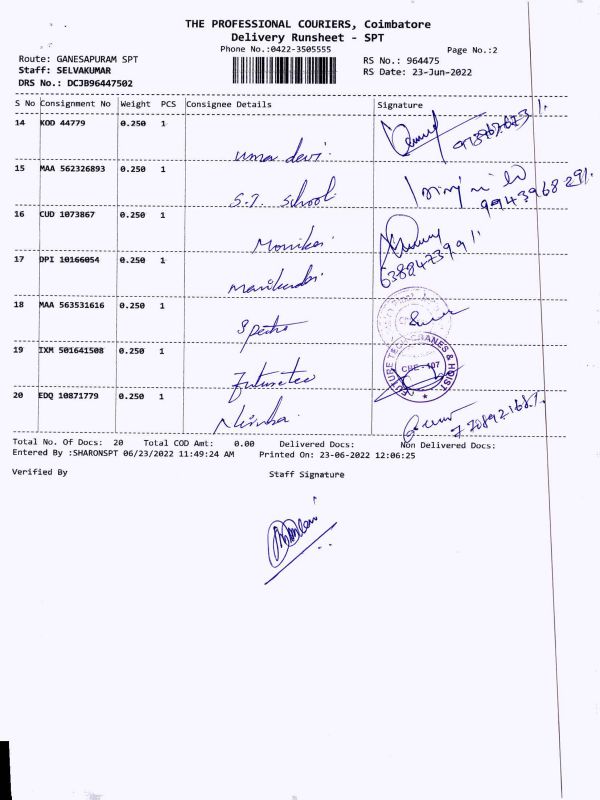 THE PROFESSIONAL COURIERS, Coimbatore
Delivery Runsheet - SPT
Phone No.:0422-3505555
Page No.:2
Route: GANESAPURAM SPT
RS No.: 964475
Staff: SELVAKUMAR
RS Date: 23-Jun-2022
DRS No.: DCJB96447502
S No Consignment No Weight PCS Consignee Details Signature
14 KOD 44779 0.250 1
uma devi
15 MAA 562326893 0.250 1
S.J. School
9943968291
16 CUD 1073867 0.250 1
Monika
17 DPI 10166054 0.250 1
6388473991
18 MAA 563531616 0.250 1
19 IXM 501641508 0.250 1
FUTURE TECH CRANES & HOIST
CBE - 107
Futuretec
20 EDQ 10871779 0.250 1
Total No. Of Docs: 20 Total COD Amt: 0.00 Delivered Docs: Non Delivered Docs:
Entered By :SHARONSPT 06/23/2022 11:49:24 AM Printed On: 23-06-2022 12:06:25
Verified By Staff Signature